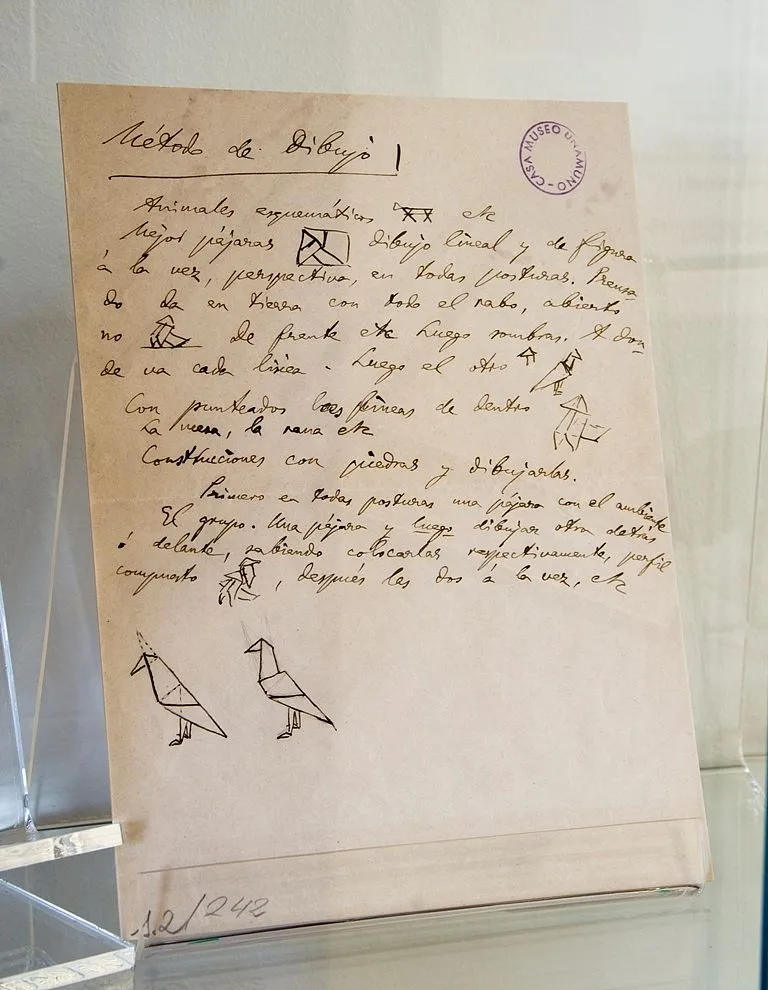 Método de Dibujo
CASA MUSEO UNAMUNO
Animales esquemáticos etc
Mejor pájaras dibujo lineal y de figura
á la vez, perspectiva, en todas posturas.
do da en tierra con todo el rabo, abierto
no de frente etc Luego sombras. A don-
de va cada línea - Luego el otro
Con punteados líneas de dentro
La mesa, la rana etc
Construcciones con piedras y dibujarlas.
Primero en todas posturas una pájara con el ambiente
El grupo. Una pájara y luego dibujar otra detrás
ó delante, sabiendo colocarlas respectivamente, perfil
compuesto , después las dos á la vez, etc
1.2/242